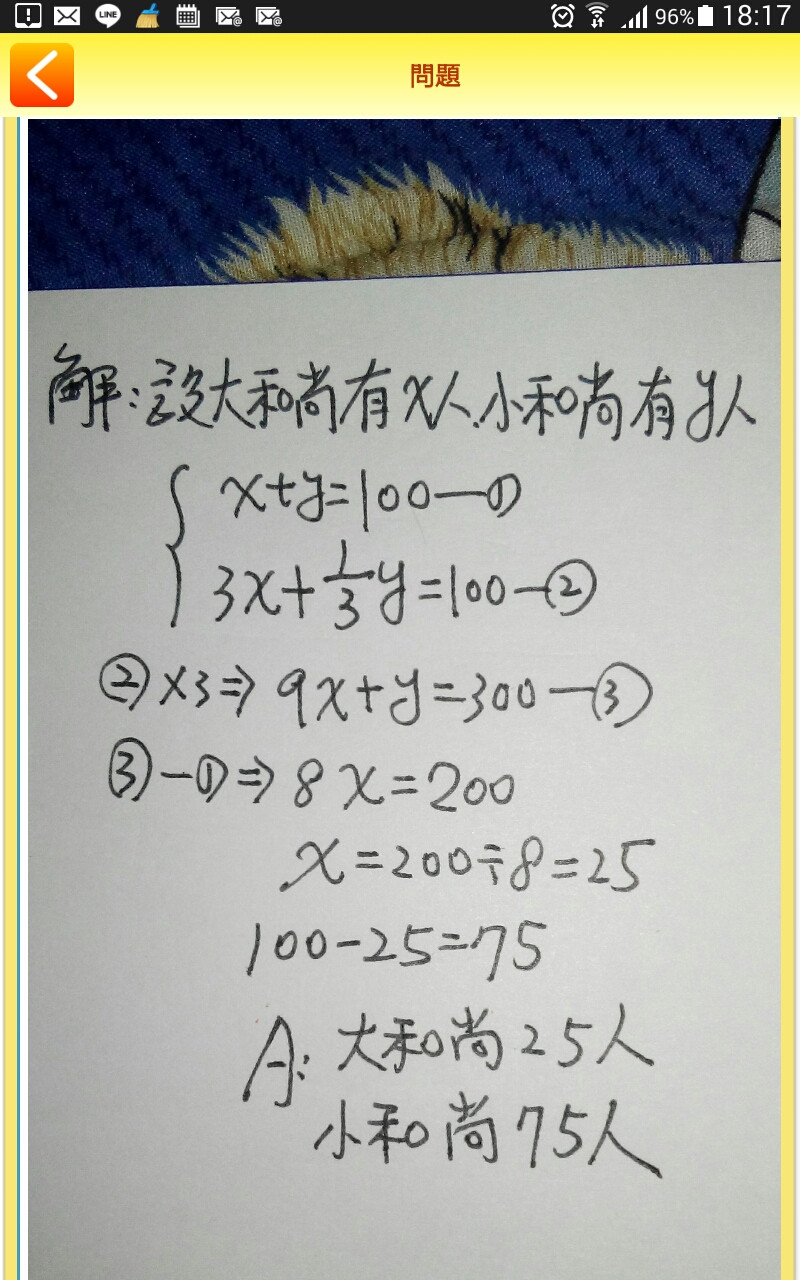 96% 18:17
問題
解:設大和尚有x人.小和尚有y人
x+y=100—①
3x+1/3y=100—②
②×3⇒9x+y=300—③
③-①⇒8x=200
x=200÷8=25
100-25=75
A:大和尚25人
小和尚75人